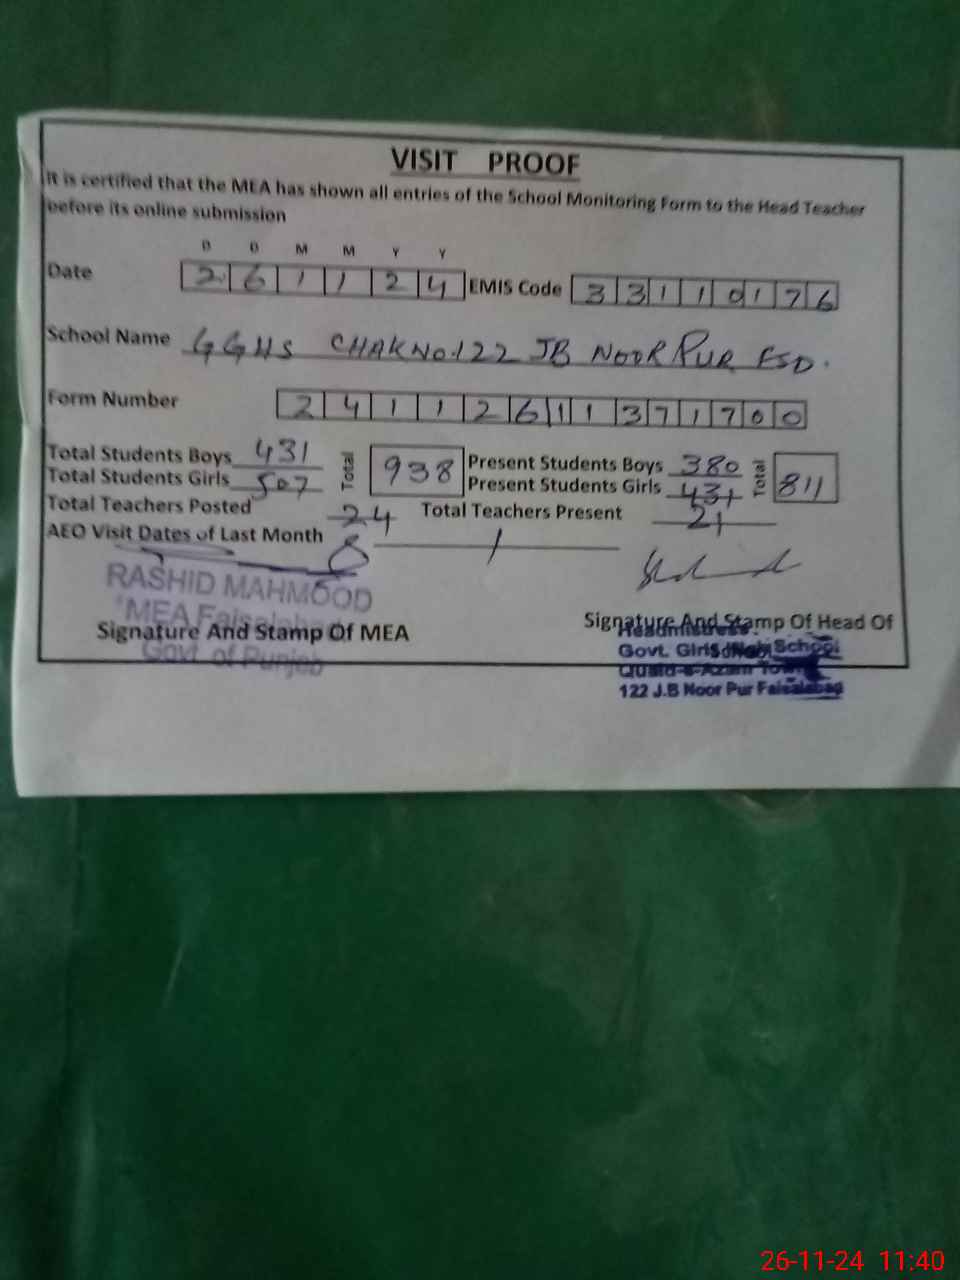 VISIT PROOF
It is certified that the MEA has shown all entries of the School Monitoring Form to the Head Teacher
before its online submission
D D M M Y Y
Date 2 6 1 1 2 4 EMIS Code 3 3 1 1 0 1 7 6
School Name GGHS CHAK No.122 JB NOOR PUR FSD.
Form Number 2 4 1 1 2 6 1 1 3 7 1 7 0 0
Total Students Boys 431 Total 938 Present Students Boys 380 Total 811
Total Students Girls 507 Present Students Girls 431
Total Teachers Posted 24 Total Teachers Present 21
AEO Visit Dates of Last Month
RASHID MAHMOOD
MEA Faisalabad
Govt. of Punjab
Signature And Stamp Of MEA
Signature And Stamp Of Head Of
Headmistress
Govt. Girls High School
Quaid-e-Azam Town
122 J.B Noor Pur Faisalabad
26-11-24 11:40